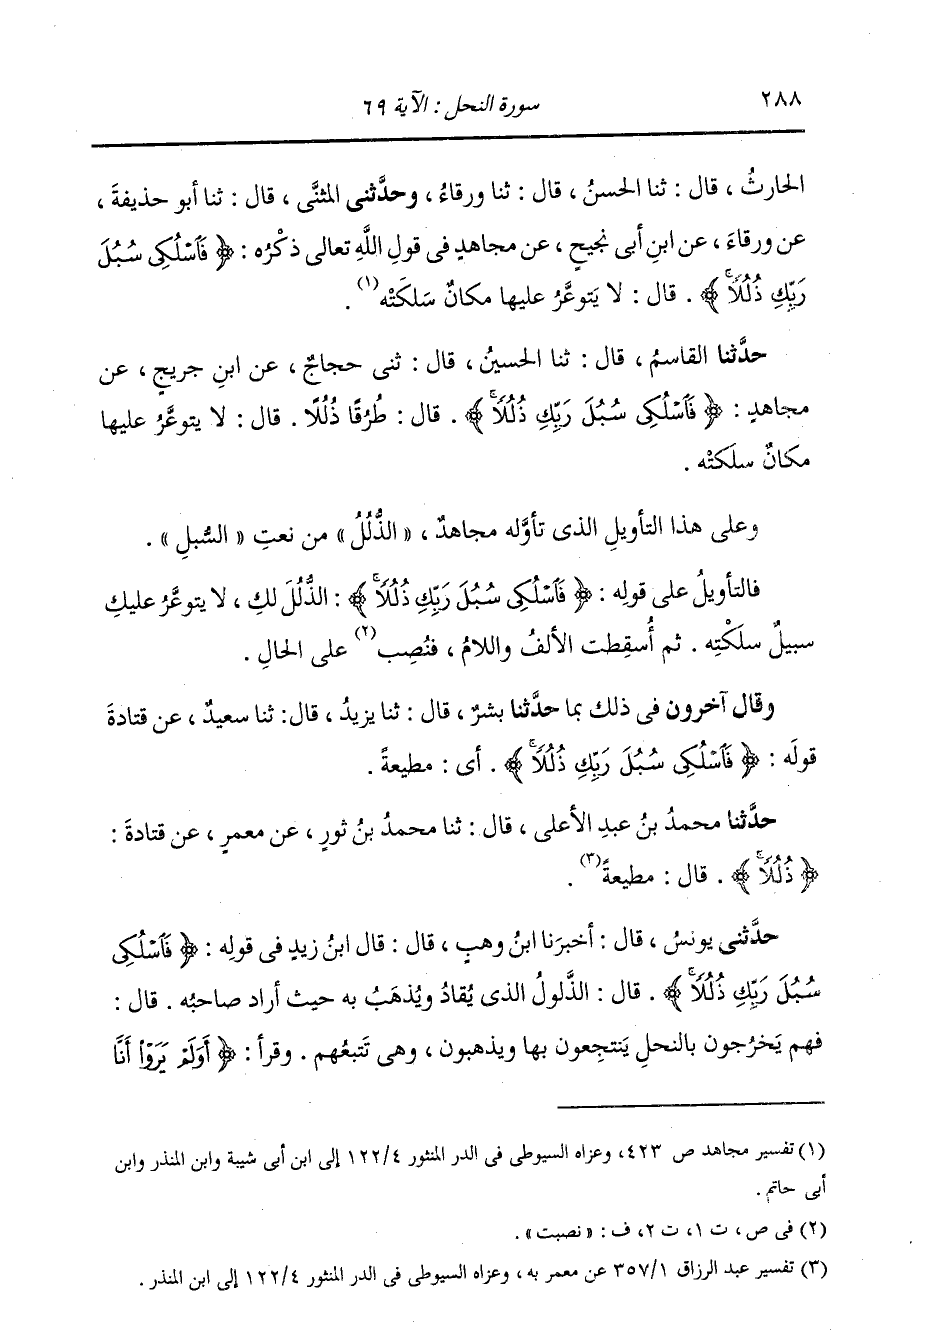 ٢٨٨
سورة النحل : الآية ٦٩
الحارثُ ، قال : ثنا الحسنُ ، قال : ثنا ورقاءُ ، وحدَّثنى المثنَّى ، قال : ثنا أبو حذيفةَ ،
عن ورقاءَ ، عن ابنِ أبى نجيحٍ ، عن مجاهدٍ فى قولِ اللَّهِ تعالى ذكْرُه : ﴿ فَٱسْلُكِى سُبُلَ
رَبِّكِ ذُلُلًاۚ ﴾ . قال : لا يَتوعَّرُ عليها مكانٌ سَلَكَتْه(١) .
حدَّثنا القاسمُ ، قال : ثنا الحسينُ ، قال : ثنى حجاجٌ ، عن ابنِ جريجٍ ، عن
مجاهدٍ : ﴿ فَٱسْلُكِى سُبُلَ رَبِّكِ ذُلُلًاۚ ﴾ . قال : طُرُقًا ذُلُلًا . قال : لا يتوعَّرُ عليها
مكانٌ سلَكتْه .
وعلى هذا التأويلِ الذى تأوَّله مجاهدٌ ، « الذُّلُلُ » من نعتِ « السُّبلِ » .
فالتأويلُ على قولِه : ﴿ فَٱسْلُكِى سُبُلَ رَبِّكِ ذُلُلًاۚ ﴾ : الذُّلُلَ لكِ ، لا يتوعَّرُ عليكِ
سبيلٌ سلَكْتِه . ثم أُسقِطت الألفُ واللامُ ، فنُصِب(٢) على الحالِ .
وقال آخرون فى ذلك بما حدَّثنا بشرٌ ، قال : ثنا يزيدُ ، قال: ثنا سعيدٌ ، عن قتادةَ
قولَه : ﴿ فَٱسْلُكِى سُبُلَ رَبِّكِ ذُلُلًاۚ ﴾ . أى : مطيعةً .
حدَّثنا محمدُ بنُ عبدِ الأعلى ، قال : ثنا محمدُ بنُ ثورٍ ، عن معمرٍ ، عن قتادةَ :
﴿ ذُلُلًاۚ ﴾ . قال : مطيعةً(٣) .
حدَّثنى يونسُ ، قال : أخبرَنا ابنُ وهبٍ ، قال : قال ابنُ زيدٍ فى قولِه : ﴿ فَٱسْلُكِى
سُبُلَ رَبِّكِ ذُلُلًاۚ ﴾ . قال : الذَّلولُ الذى يُقادُ ويُذهَبُ به حيث أراد صاحبُه . قال :
فهم يَخرُجون بالنحلِ يَنتجِعون بها ويذهبون ، وهى تَتبعُهم . وقرأ : ﴿ أَوَلَمْ يَرَوْا۟ أَنَّا
(١) تفسير مجاهد ص ٤٢٣، وعزاه السيوطى فى الدر المنثور ١٢٢/٤ إلى ابن أبى شيبة وابن المنذر وابن
أبى حاتم .
(٢) فى ص ، ت ١، ت ٢، ف : « نصبت » .
(٣) تفسير عبد الرزاق ٣٥٧/١ عن معمر به ، وعزاه السيوطى فى الدر المنثور ١٢٢/٤ إلى ابن المنذر .